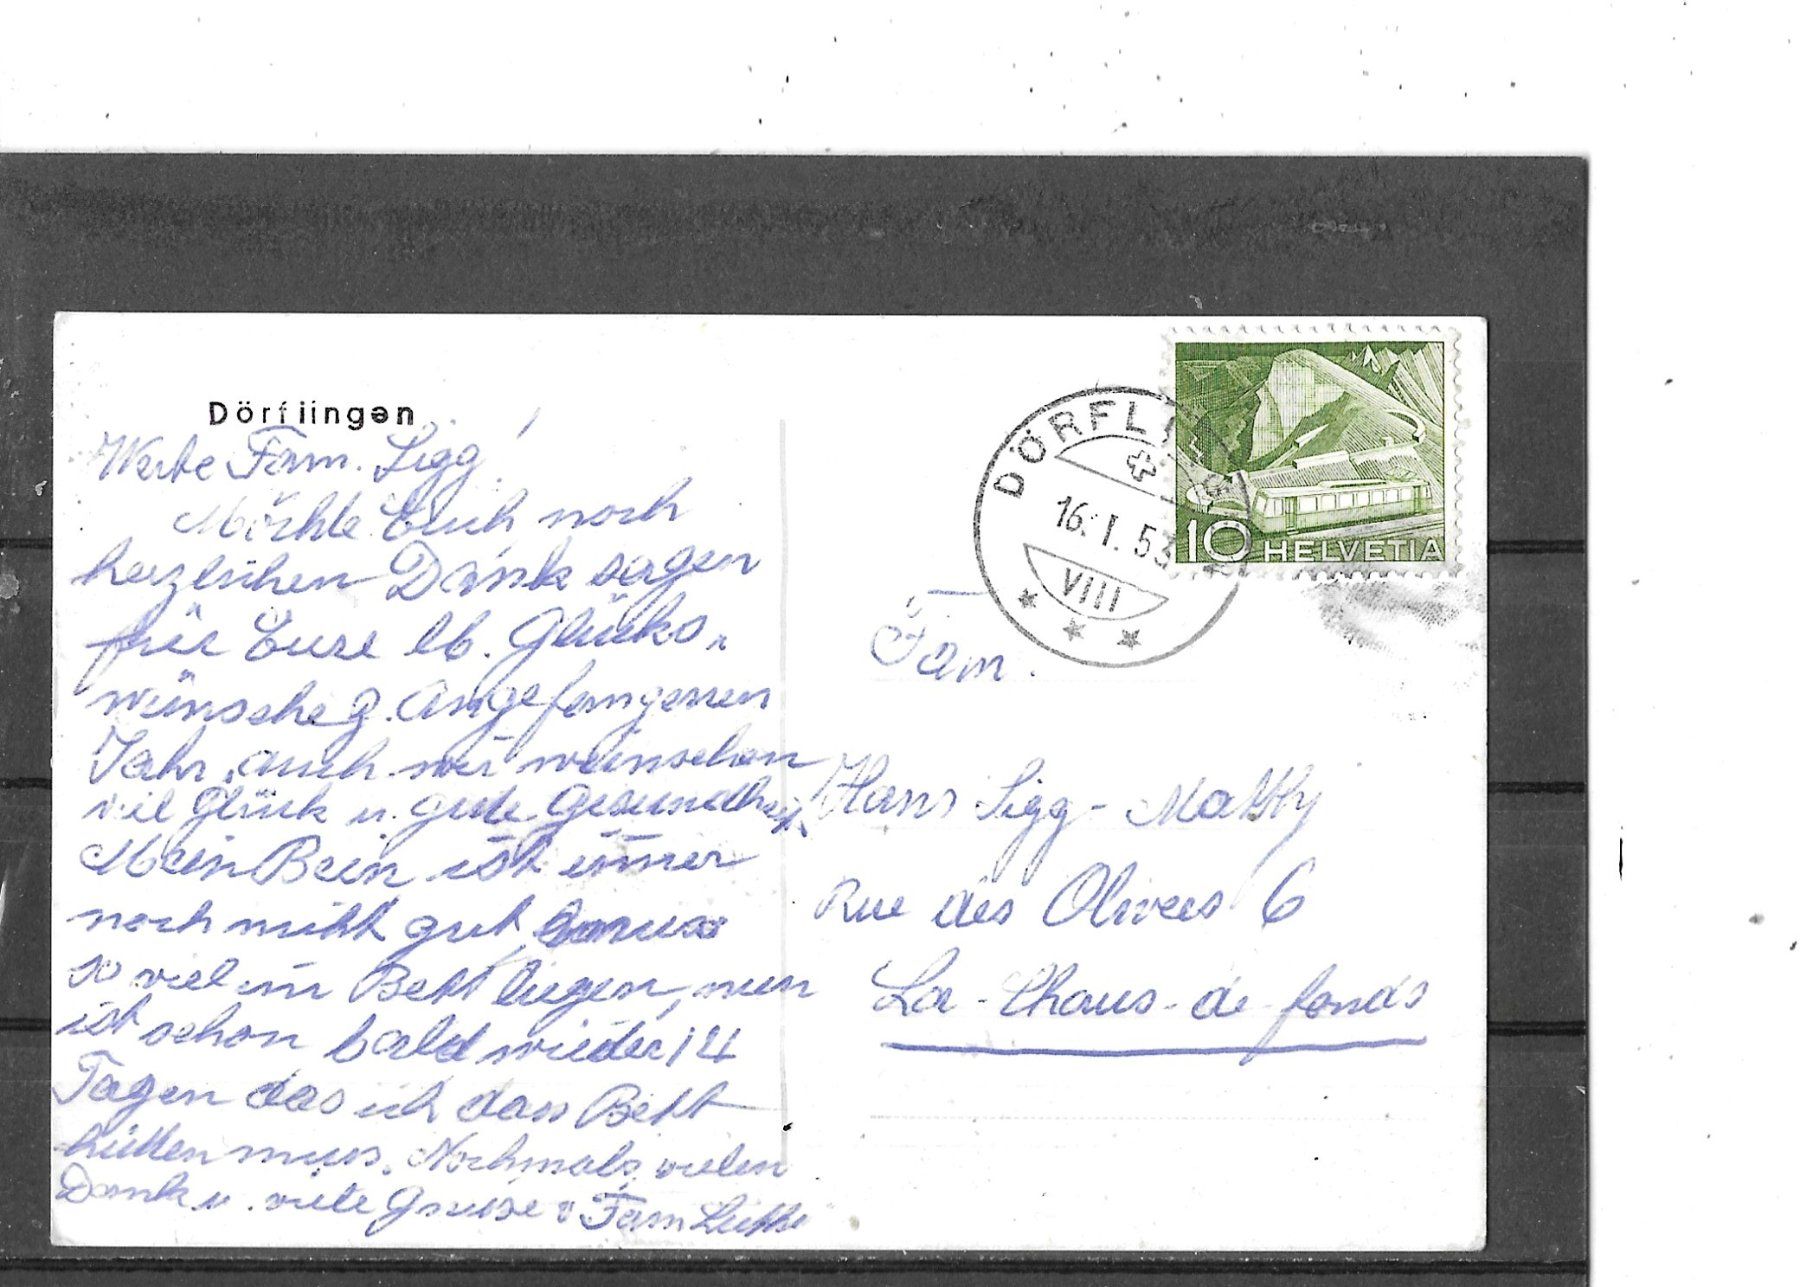 Dörflingen
Werte Fam. Sigg!
Möchte Euch noch
herzlichen Dank sagen
für Eure lb. Glücks-
wünsche z. angefangenen
Jahr, auch wir wünschen
viel Glück u. gute Gesundheit.
Mein Bein ist immer
noch nicht gut, muss
so viel im Bett liegen, nun
ist schon bald wieder 14
Tagen das ich dass Bett
hütten muss. Nochmals vielen
Dank u. viele Grüsse v. Fam
DÖRFLINGEN
16.I.53
VIII
10 HELVETIA
Fam.
Hans Sigg-Matthy
Rue des Olives 6
La-Chaus-de-fonds